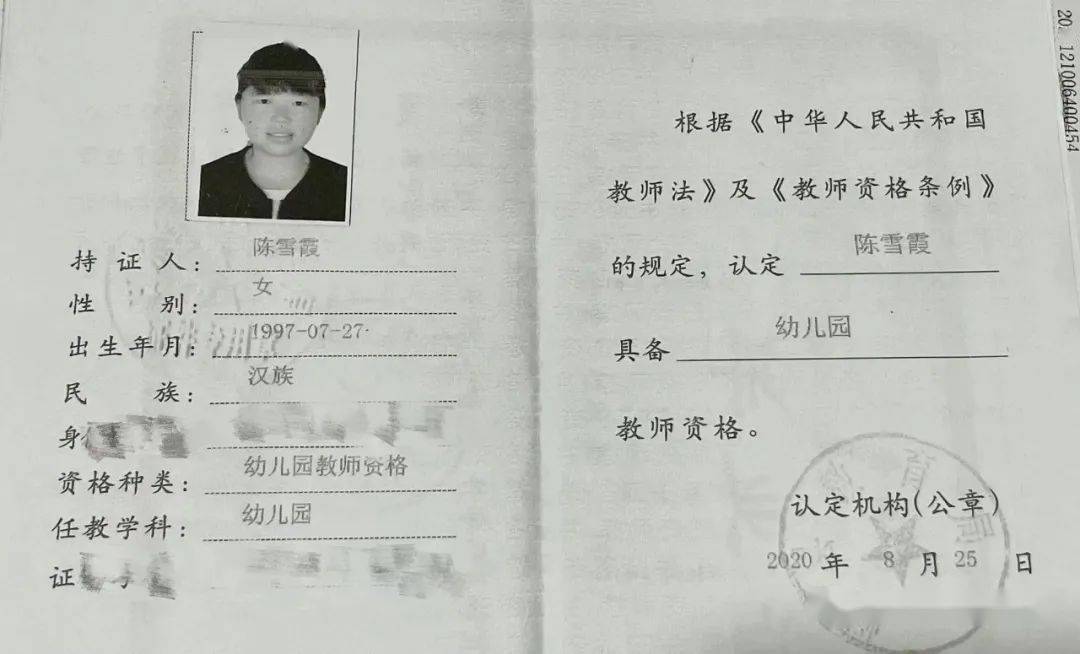 持证人：陈雪霞
性别：女
出生年月：1997-07-27
民族：汉族
身
资格种类：幼儿园教师资格
任教学科：幼儿园
证
根据《中华人民共和国
教师法》及《教师资格条例》
的规定，认定 陈雪霞
具备 幼儿园
教师资格。
认定机构(公章)
2020 年 8 月 25 日
20. 121006400454